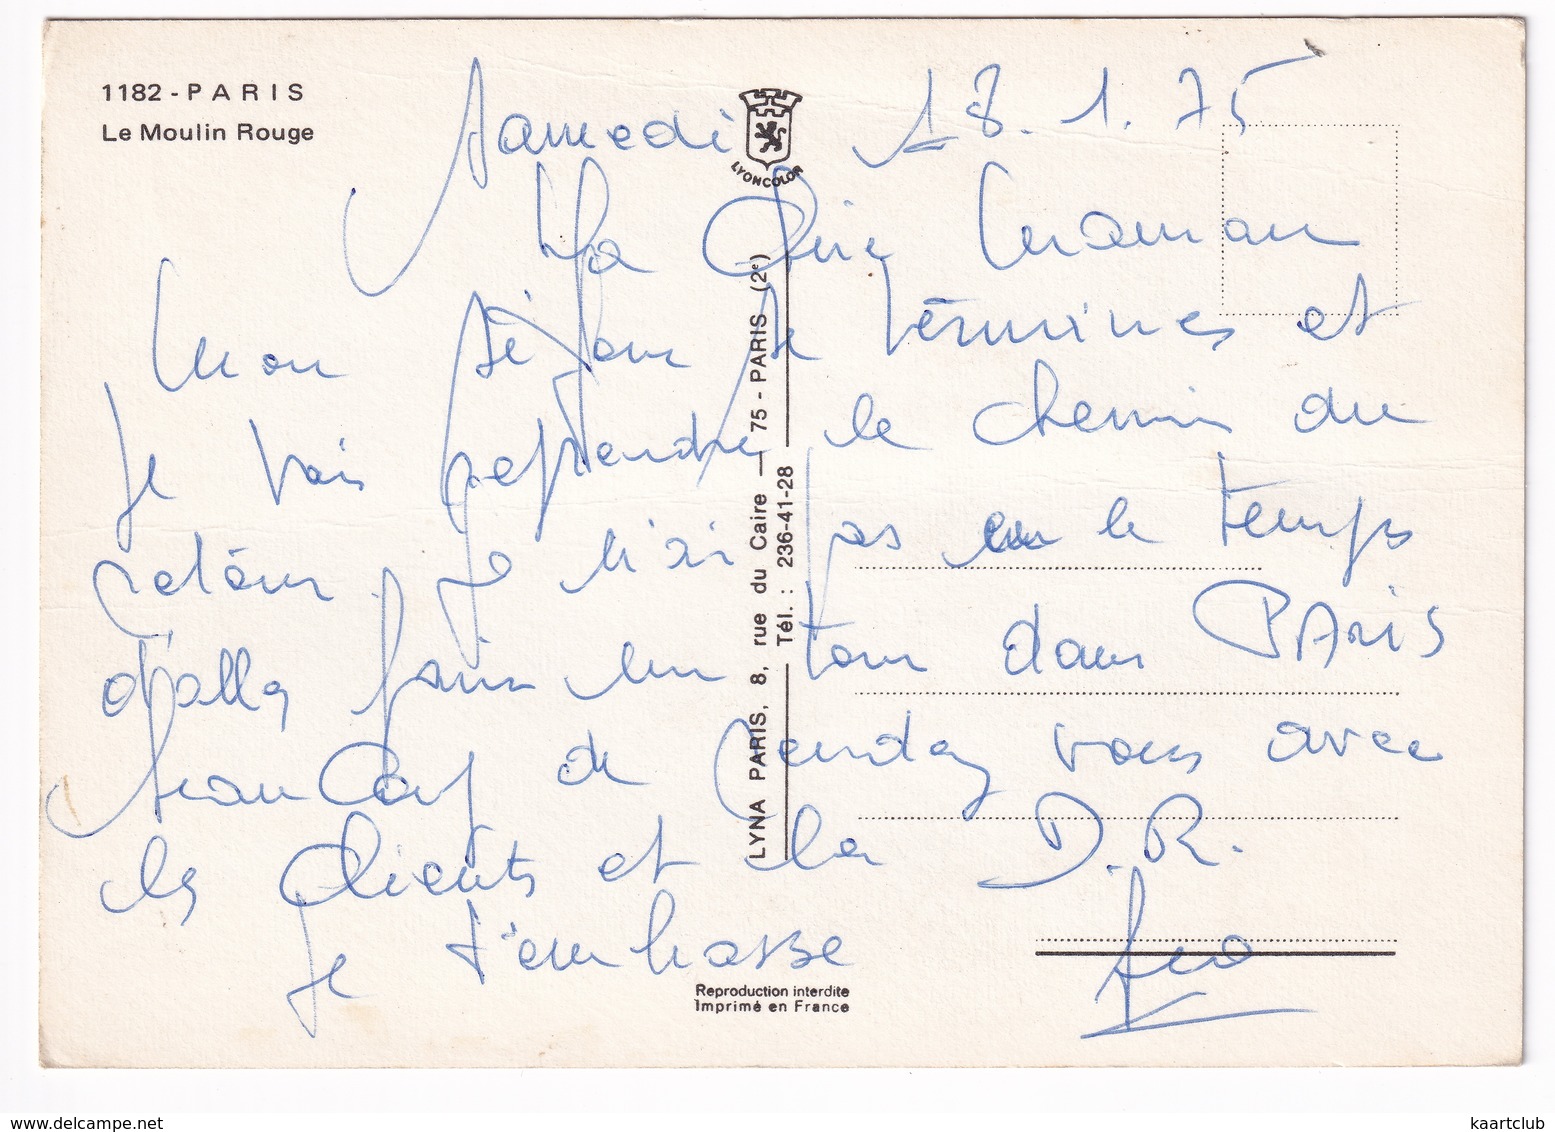 1182 - PARIS
Le Moulin Rouge
LYONCOLOR
Samedi 18.1.75
Ma Chère Maman
Mon séjour se termines et
Je vais reprendre le chemin du
retour. Je n'ai pas eu le temps
d'aller faire un tour dans PARIS
de Rendez vous avec
les clients et la D.R.
Je t'embrasse
LYNA PARIS, 8, rue du Caire — 75 - PARIS (2e)
Tél. : 236-41-28
Reproduction interdite
Imprimé en France
www.delcampe.net
kaartclub